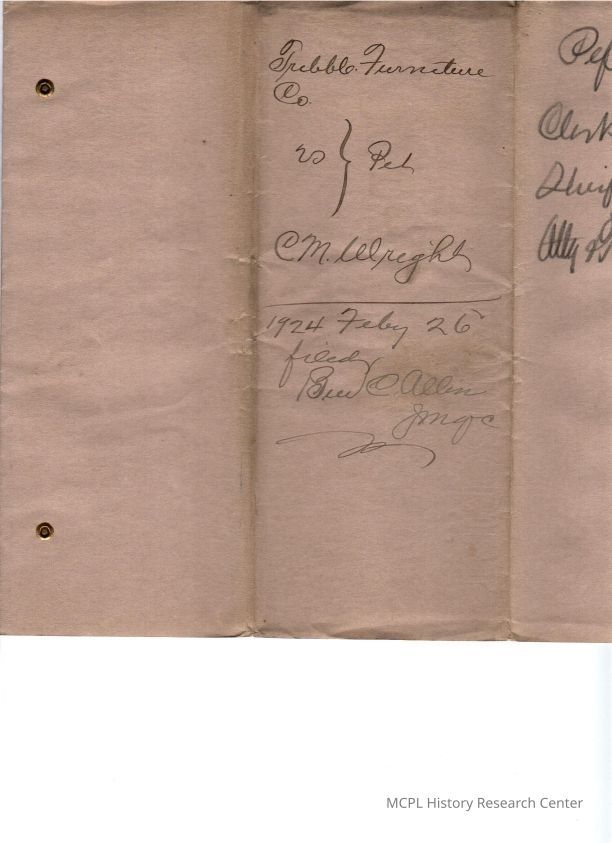 Tribble Furniture
Co.
vs } Pet
C M. Wright
1924 Feby 26
filed
Ben C Allin
Clerk
MCPL History Research Center